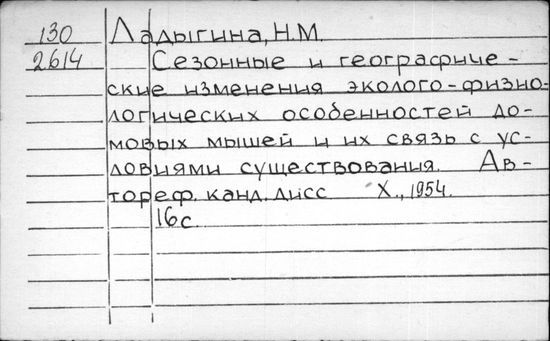 130 Ладыгина, Н.М.
2614 Сезонные и географиче-
ские изменения эколого-физио-
логических особенностей до-
мовых мышей и их связь с ус-
ловиями существования. Ав-
тореф. канд. дисс Х., 1954.
16 с.